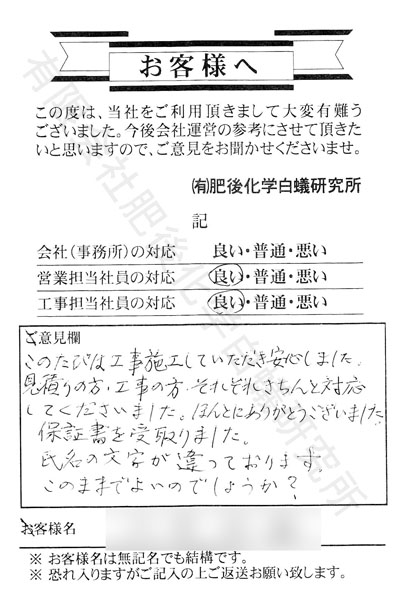 お客様へ
この度は、当社をご利用頂きまして大変有難う
ございました。今後会社運営の参考にさせて頂きた
いと思いますので、ご意見をお聞かせくださいませ。
㈲肥後化学白蟻研究所
記
会社(事務所)の対応 良い・普通・悪い
営業担当社員の対応 良い・普通・悪い
工事担当社員の対応 良い・普通・悪い
ご意見欄
このたびは工事施工していただき安心しました。
見積りの方、工事の方、それぞれきちんと対応
してくださいました。ほんとにありがとうございました
保証書を受取りました。
氏名の文字が違っております。
このままでよいのでしょうか?
お客様名
※ お客様名は無記名でも結構です。
※ 恐れ入りますがご記入の上ご返送お願い致します。
有限会社肥後化学白蟻研究所